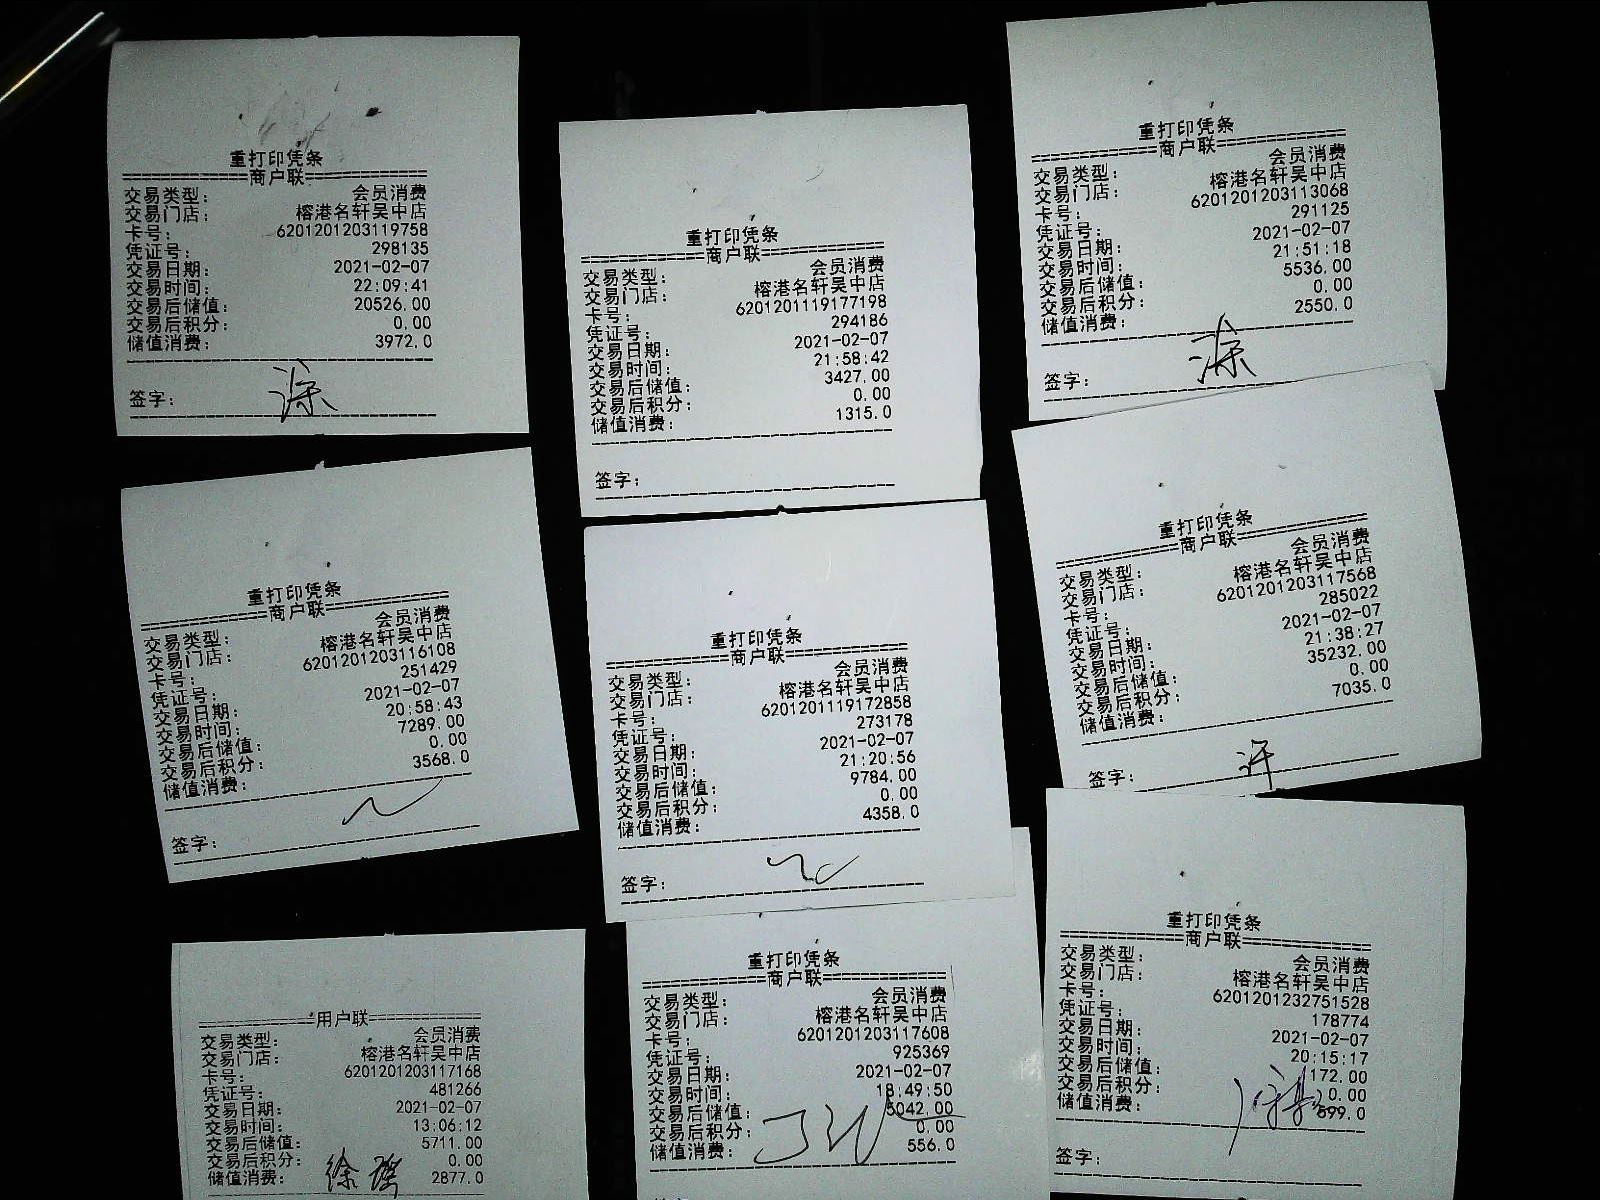 重打印凭条
==============商户联==============
交易类型: 会员消费
交易门店: 榕港名轩吴中店
卡号: 6201201203119758
凭证号: 298135
交易日期: 2021-02-07
交易时间: 22:09:41
交易后储值: 20526.00
交易后积分: 0.00
储值消费: 3972.0
签字:
重打印凭条
==============商户联==============
交易类型: 会员消费
交易门店: 榕港名轩吴中店
卡号: 6201201119177198
凭证号: 294186
交易日期: 2021-02-07
交易时间: 21:58:42
交易后储值: 3427.00
交易后积分: 0.00
储值消费: 1315.0
签字:
重打印凭条
==============商户联==============
交易类型: 会员消费
交易门店: 榕港名轩吴中店
卡号: 6201201203113068
凭证号: 291125
交易日期: 2021-02-07
交易时间: 21:51:18
交易后储值: 5536.00
交易后积分: 0.00
储值消费: 2550.0
签字:
重打印凭条
==============商户联==============
交易类型: 会员消费
交易门店: 榕港名轩吴中店
卡号: 6201201203116108
凭证号: 251429
交易日期: 2021-02-07
交易时间: 20:58:43
交易后储值: 7289.00
交易后积分: 0.00
储值消费: 3568.0
签字:
重打印凭条
==============商户联==============
交易类型: 会员消费
交易门店: 榕港名轩吴中店
卡号: 6201201119172858
凭证号: 273178
交易日期: 2021-02-07
交易时间: 21:20:56
交易后储值: 9784.00
交易后积分: 0.00
储值消费: 4358.0
签字:
重打印凭条
==============商户联==============
交易类型: 会员消费
交易门店: 榕港名轩吴中店
卡号: 6201201203117568
凭证号: 285022
交易日期: 2021-02-07
交易时间: 21:38:27
交易后储值: 35232.00
交易后积分: 0.00
储值消费: 7035.0
签字: 许
==============用户联==============
交易类型: 会员消费
交易门店: 榕港名轩吴中店
卡号: 6201201203117168
凭证号: 481266
交易日期: 2021-02-07
交易时间: 13:06:12
交易后储值: 5711.00
交易后积分: 0.00
储值消费: 2877.0
重打印凭条
==============商户联==============
交易类型: 会员消费
交易门店: 榕港名轩吴中店
卡号: 6201201203117608
凭证号: 925369
交易日期: 2021-02-07
交易时间: 18:49:50
交易后储值: 5042.00
交易后积分: 0.00
储值消费: 556.0
重打印凭条
==============商户联==============
交易类型: 会员消费
交易门店: 榕港名轩吴中店
卡号: 6201201232751528
凭证号: 178774
交易日期: 2021-02-07
交易时间: 20:15:17
交易后储值: 172.00
交易后积分: 0.00
储值消费: 899.0
签字: